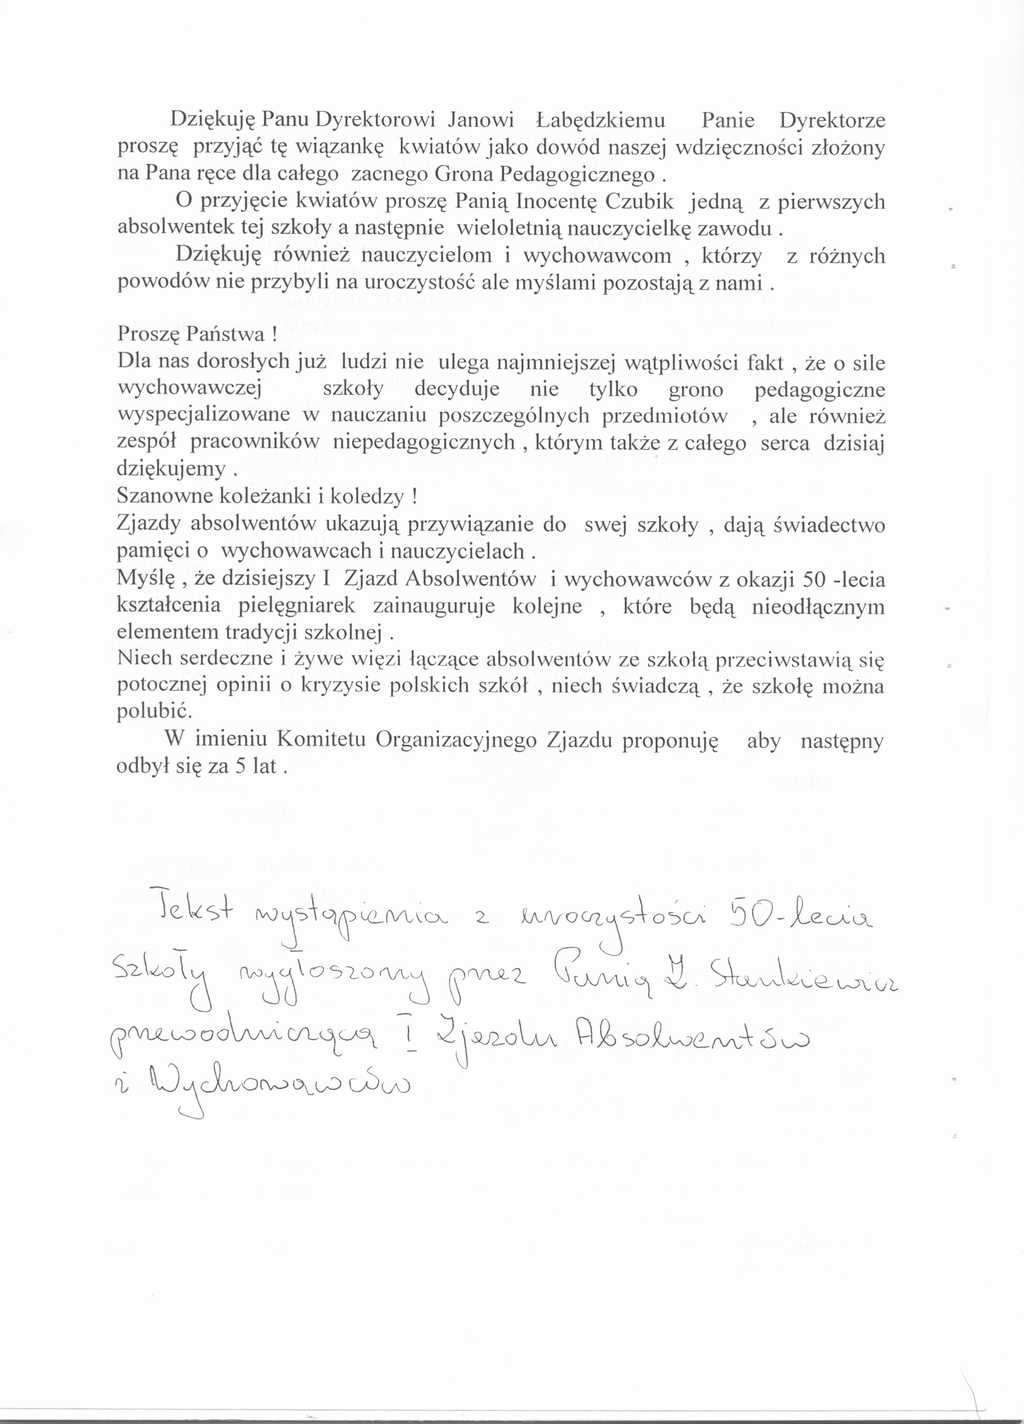 Dziękuję Panu Dyrektorowi Janowi Łabędzkiemu Panie Dyrektorze
proszę przyjąć tę wiązankę kwiatów jako dowód naszej wdzięczności złożony
na Pana ręce dla całego zacnego Grona Pedagogicznego .
O przyjęcie kwiatów proszę Panią Inocentę Czubik jedną z pierwszych
absolwentek tej szkoły a następnie wieloletnią nauczycielkę zawodu .
Dziękuję również nauczycielom i wychowawcom , którzy z różnych
powodów nie przybyli na uroczystość ale myślami pozostają z nami .
Proszę Państwa !
Dla nas dorosłych już ludzi nie ulega najmniejszej wątpliwości fakt , że o sile
wychowawczej szkoły decyduje nie tylko grono pedagogiczne
wyspecjalizowane w nauczaniu poszczególnych przedmiotów , ale również
zespół pracowników niepedagogicznych , którym także z całego serca dzisiaj
dziękujemy .
Szanowne koleżanki i koledzy !
Zjazdy absolwentów ukazują przywiązanie do swej szkoły , dają świadectwo
pamięci o wychowawcach i nauczycielach .
Myślę , że dzisiejszy I Zjazd Absolwentów i wychowawców z okazji 50 -lecia
kształcenia pielęgniarek zainauguruje kolejne , które będą nieodłącznym
elementem tradycji szkolnej .
Niech serdeczne i żywe więzi łączące absolwentów ze szkołą przeciwstawią się
potocznej opinii o kryzysie polskich szkół , niech świadczą , że szkołę można
polubić.
W imieniu Komitetu Organizacyjnego Zjazdu proponuję aby następny
odbył się za 5 lat .
Tekst wystąpienia z uroczystości 50-lecia
Szkoły wygłoszony przez Panią Z. Stankiewicz
przewodniczącą I Zjazdu Absolwentów
i Wychowawców